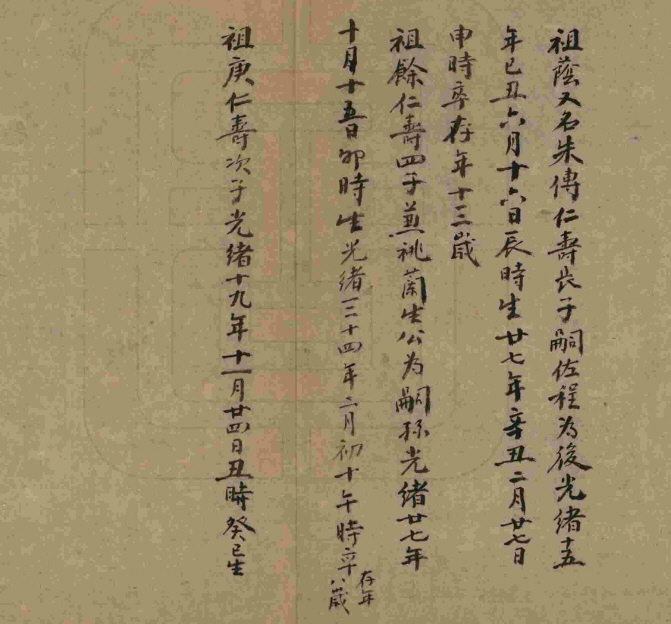 祖蔭又名朱傳仁壽長子嗣佐程為後光緒十五
年已丑六月十六日辰時生廿七年辛丑二月廿七日
申時卒存年十三歲
祖餘仁壽四子兼祧蘭生公為嗣孫光緒廿七年
十月十五日卯時生光緒三十四年二月初十午時卒存年八歲
祖庚仁壽次子光緒十九年十一月廿四日丑時癸巳生